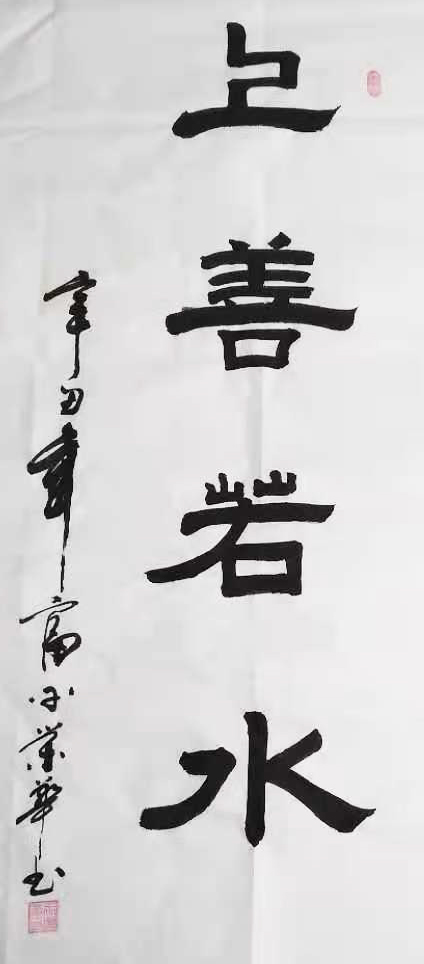 上善若水
辛丑年富華书